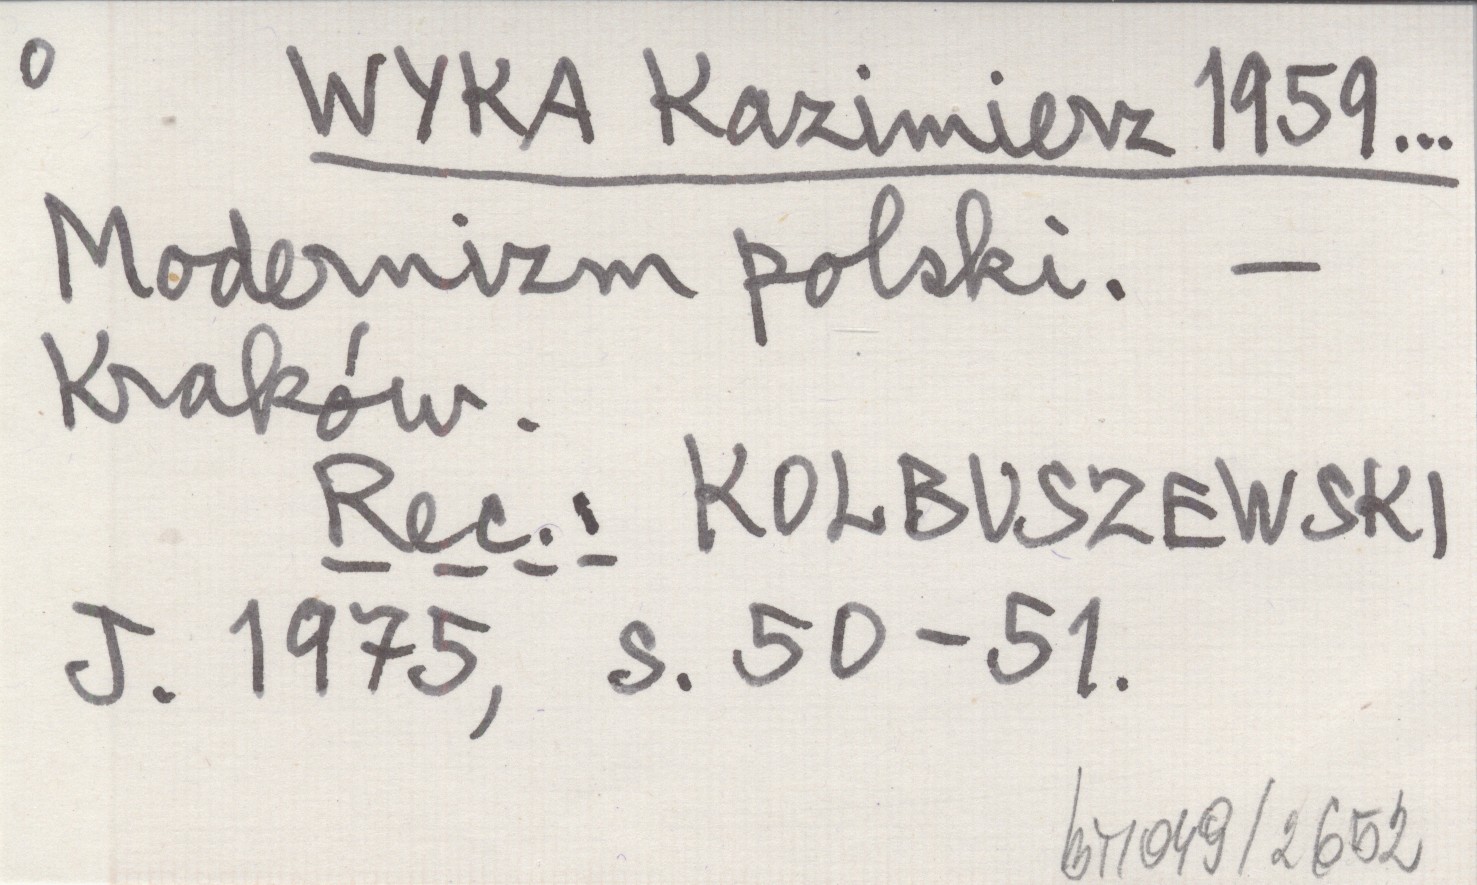 o WYKA Kazimierz 1959...
Modernizm polski. —
Kraków.
Rec.: KOLBUSZEWSKI
J. 1975, s. 50-51.
049/2652